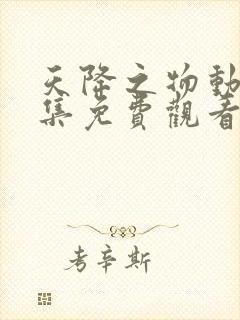 天降之物動
集免費觀看
考辛斯